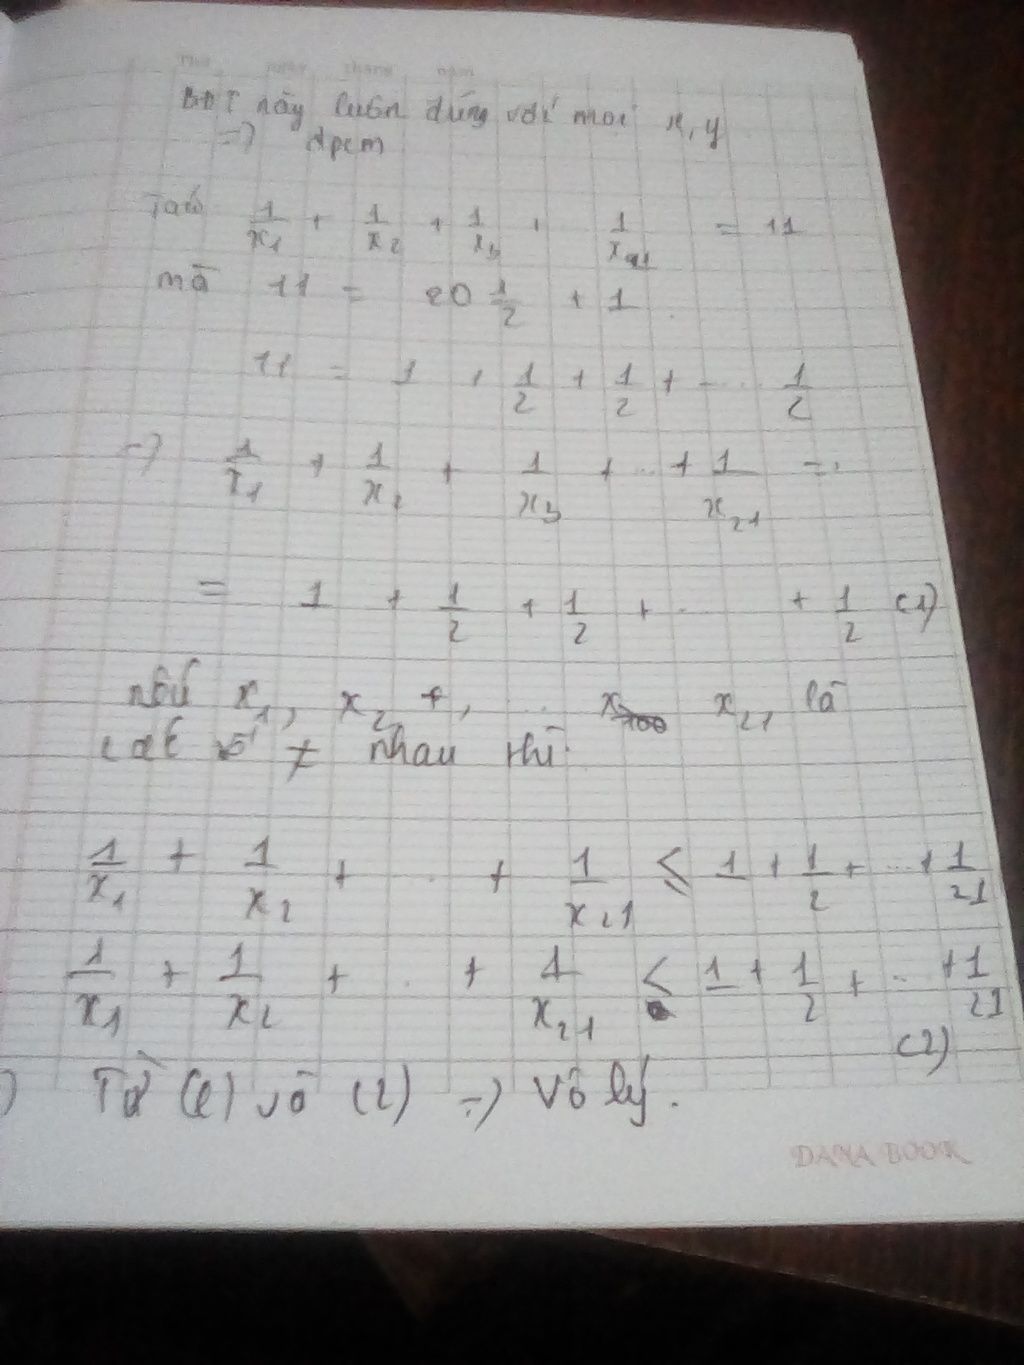 Thứ ngày tháng năm
BĐT này luôn đúng với mọi x, y
=) đpcm
Ta có 1/x₁ + 1/x₂ + 1/x₃ + 1/x₂₁ = 11
mà 11 = 20 1/2 + 1
11 = 1 + 1/2 + 1/2 + ... 1/2
=) 1/x₁ + 1/x₂ + 1/x₃ + ... + 1/x₂₁ =
= 1 + 1/2 + 1/2 + . + 1/2 (1)
nếu x₁, x₂, ... x₂₁ là
các số ≠ nhau thì
1/x₁ + 1/x₂ + . + 1/x₂₁ ≤ 1 + 1/2 + ... + 1/21
1/x₁ + 1/x₂ + . + 1/x₂₁ < 1 + 1/2 + .. + 1/21
(2)
Từ (1) và (2) =) Vô lý.
DANA BOOK